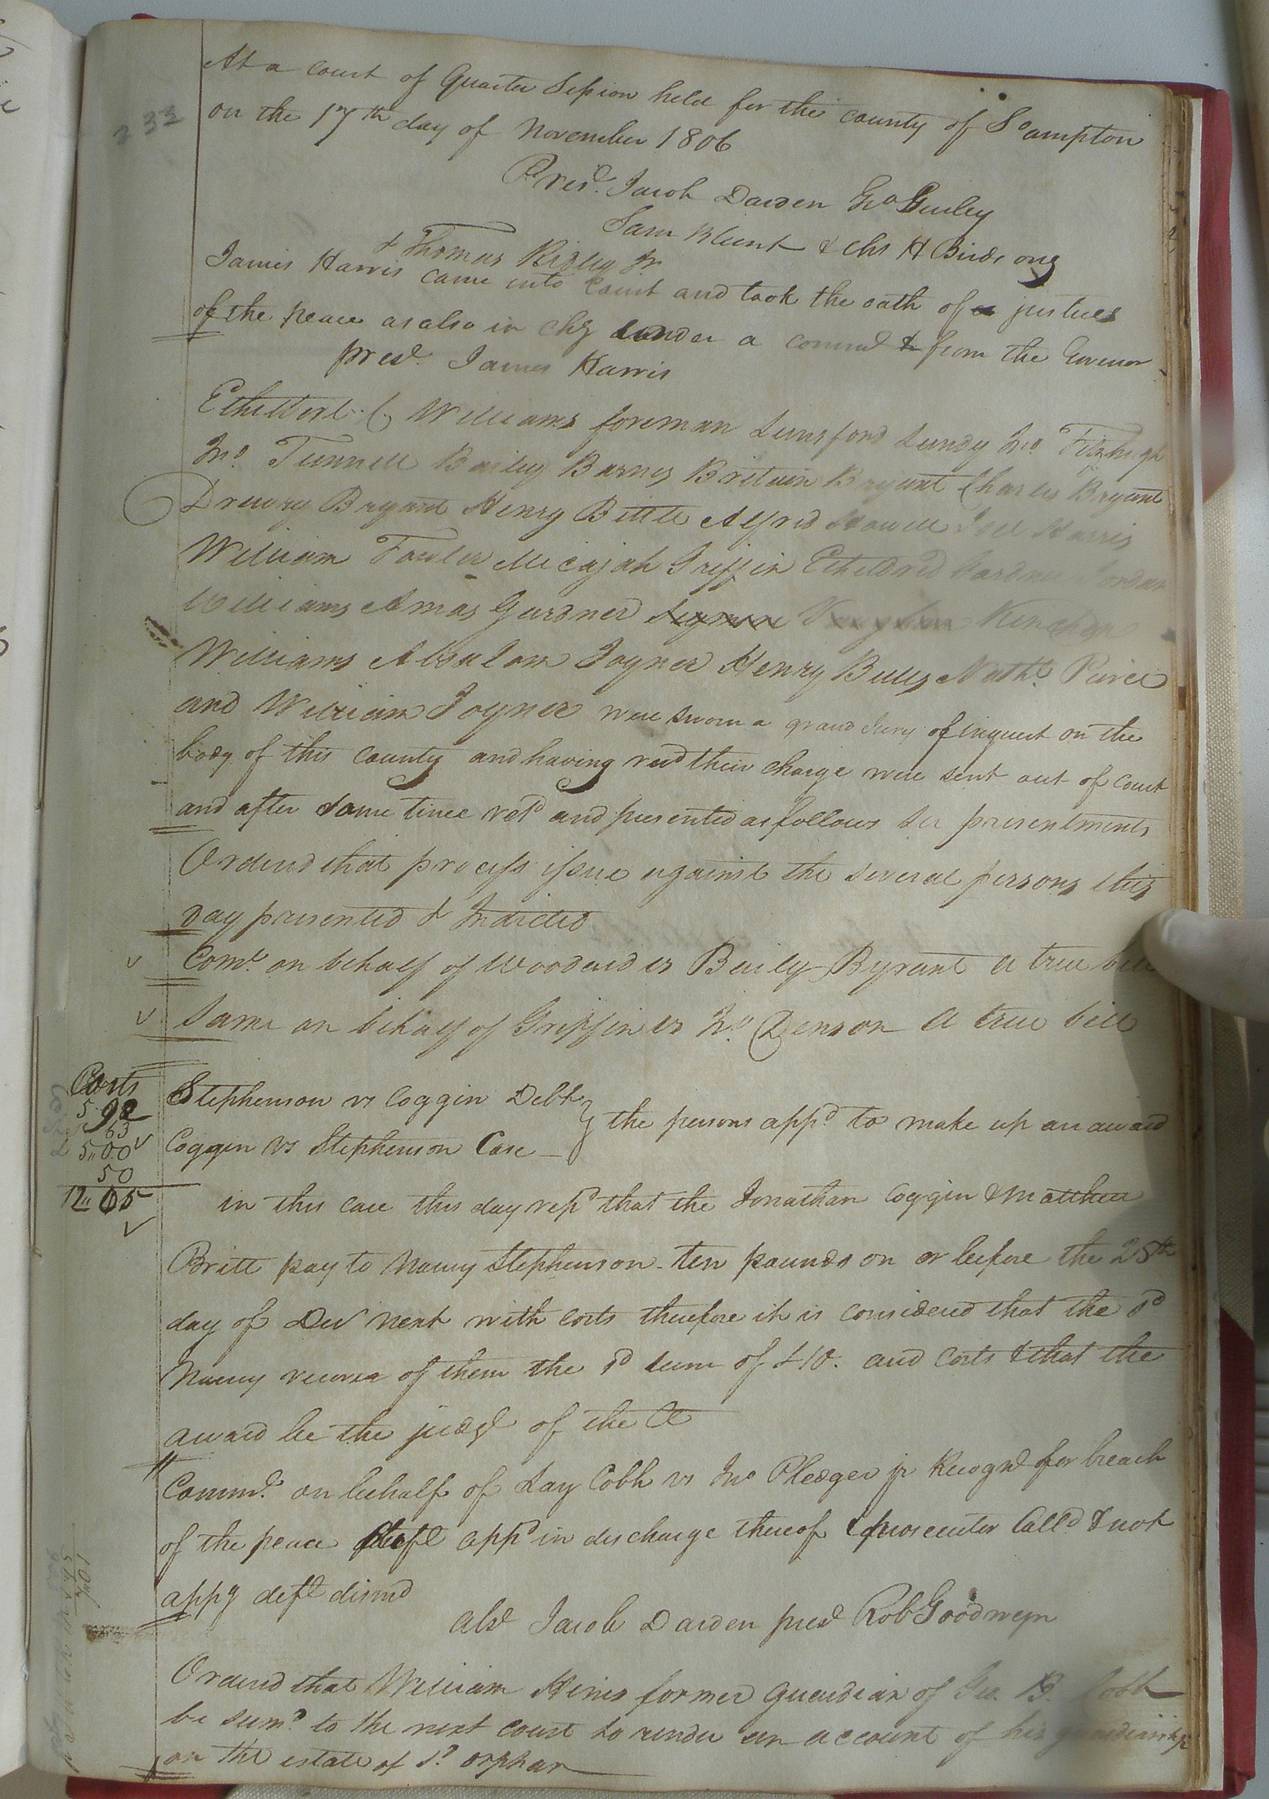 333
At a court of Quarter Session held for the county of So ampton
on the 17th day of November 1806
Presd. Jacob Darden Geo Gurley
Sam Blunt & Chs H Birdsong
& Thomas Ridley Jr
James Harris came into Court and took the oath of justices
of the peace as also in chy under a comms from the Govenor
presd. James Harris
Etheldred Williams foreman Lunsford Lundy Jno. Fitzhugh
Jno. Tunnell Bailey Barnes Britain Bryant Charles Bryant
Drewry Bryant Henry Bittle Alfrid Howell Joel Harris
William Fowler Micajah Griffin Etheldred Gardner Jordan
Williams Amas Gardner Kinchen
Williams Absalom Joyner Henry Bulls Nathl. Peirce
and William Joyner were sworn a grand Jury of inquest on the
body of this county and having recd their charge were sent out of court
and after some time retd and presented as follows See presentments
Ordered that process issue against the several persons this
day presented & Indicted
Comth. on behalf of Woodard vs Baily Byrant a true bill
Same on behalf of Griffin vs Jno. Denson a true bill
Costs
5 92
63
5.. 00
50
12.. 05
Stephenson vs Coggin Debt
Coggin vs Stephenson Case
the persons appd to make up an award
in this case this day repd that the Jonathan Coggin & Matthew
Britt pay to Nancy Stephenson ten pounds on or before the 25th
day of Decr next with costs therefore it is considered that the sd
Nancy recover of them the sd sum of £10. and costs & that the
award be the judgt of the Ct
Commth. on behalf of Lay Cobb vs Jno Pledger jr Recognd for breach
of the peace deft appd in discharge thereof & prosecutor Calld & not
appg deft dismd
abst Jacob Darden prest Rob Goodwyn
Ordered that William Hines former guardian of Geo. B. Cobb
be sumd to the next court to render an account of his guardianship
on the estate of sd. orphan